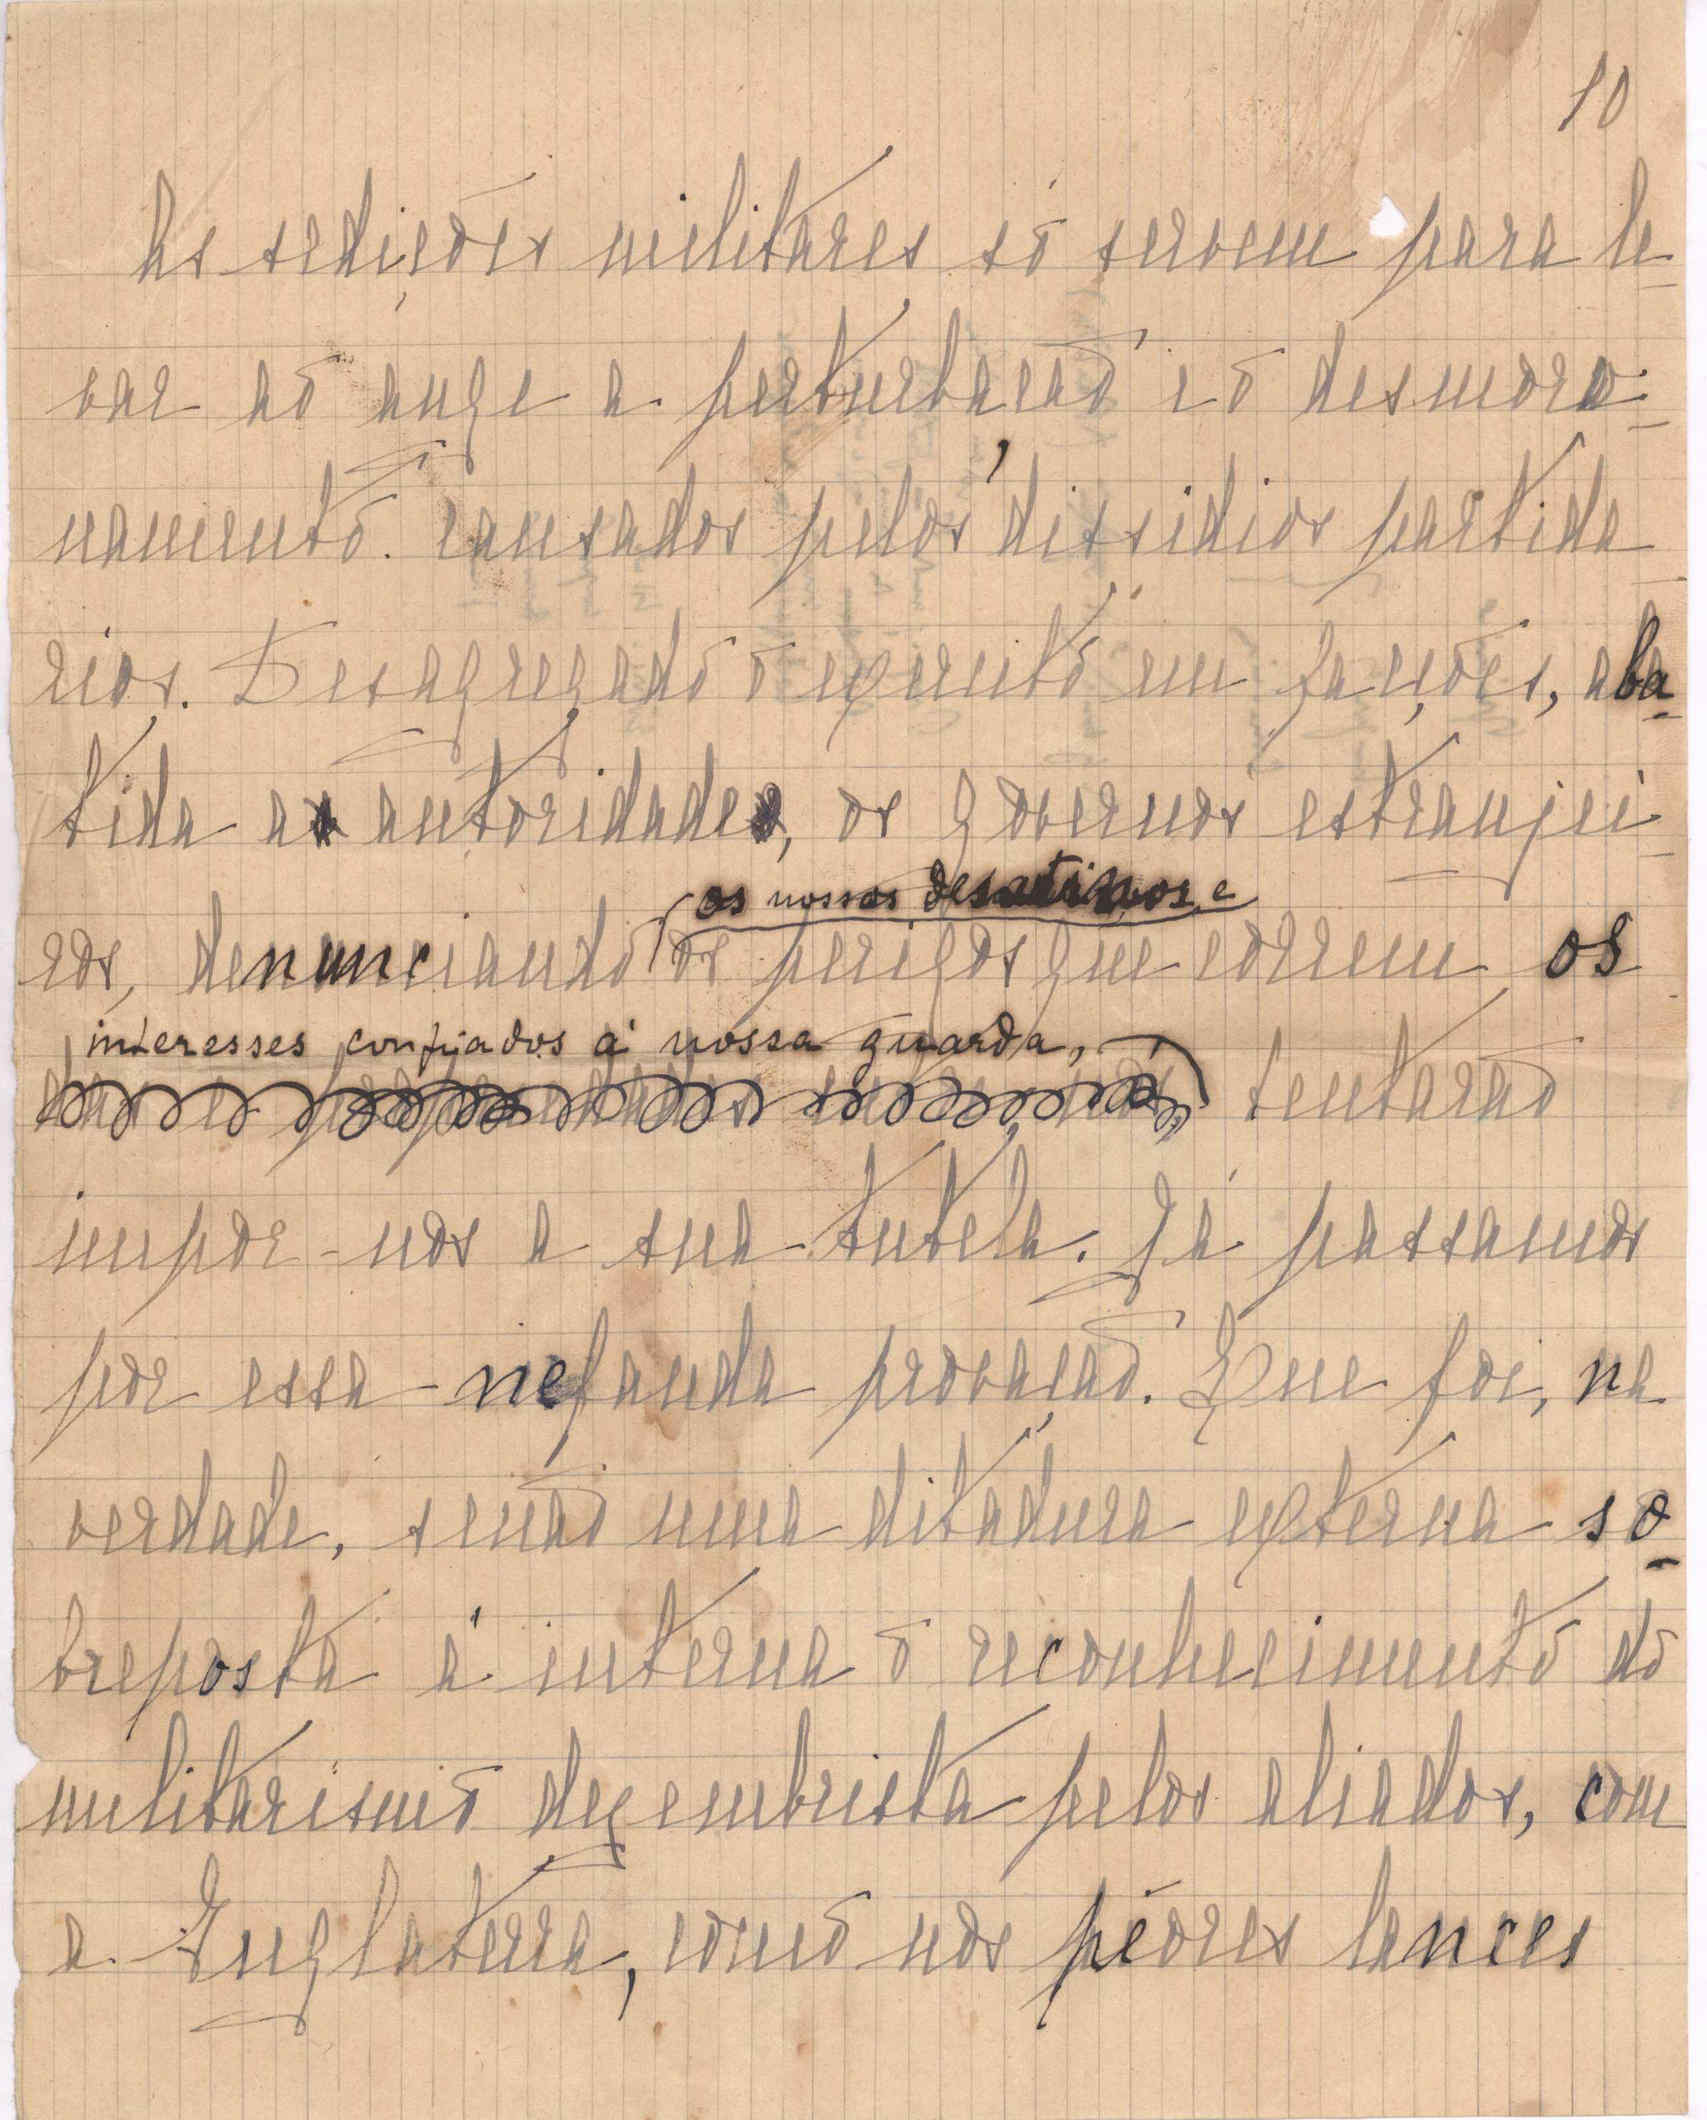 10
As sedições militares só servem para le-
var ao auge a perturbação e o desmoro-
namento causados pelos dissidios partida-
rios. Desagregado o exercito em facções, aba-
tida a autoridade, os governos estrangei-
os nossos desatinos e
ros, denunciando os perigos que correm os
interesses confiados á nossa guarda,
tentarão
impor-nos a sua tutela. Já passamos
por essa nefanda provação. Que foi, na
verdade, senão uma ditadura externa so-
breposta á interna o reconhecimento do
militarismo dezembrista pelos aliados, com
a Inglaterra, como nos peóres lances